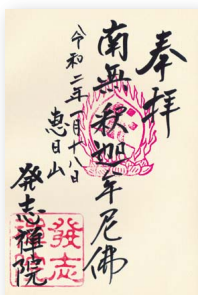 奉拜
南無釈迦牟尼佛
令和二年一月十八日
恵日山
発志禅院
發志
禪院